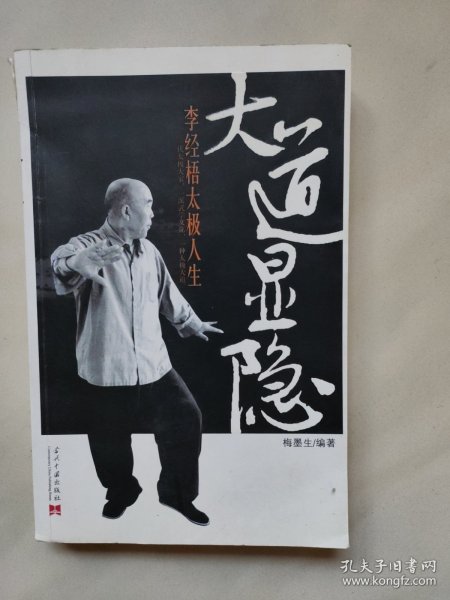 大道显隐
李经梧太极人生
梅墨生/编著
当代中国出版社
孔夫子旧书网
www.kongfz.com